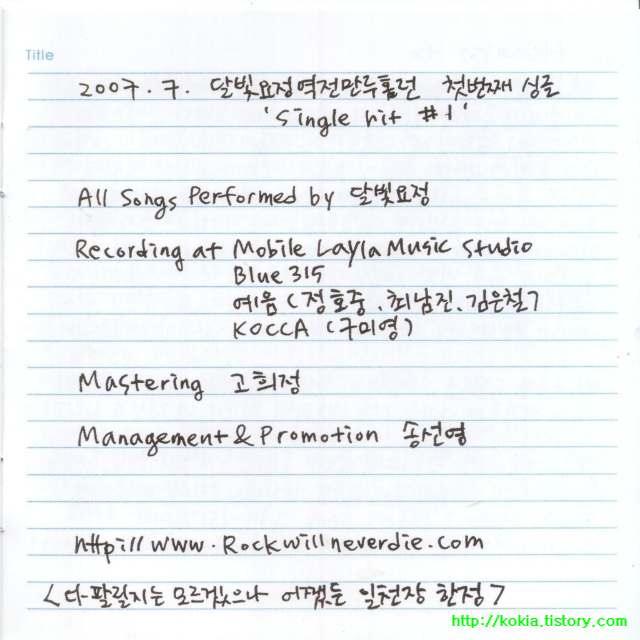 Title
2007. 7. 달빛요정역전만루홈런 첫번째 싱글
'Single hit #1'
All Songs Performed by 달빛요정
Recording at Mobile Layla Music Studio
Blue 315
예음 (정호중, 최남진, 김은철)
KOCCA (구미영)
Mastering 고희정
Management & Promotion 송선영
http://www.Rockwillneverdie.com
<다 팔릴지는 모르겠으나 어쨌든 일천장 한정>
http://kokia.tistory.com